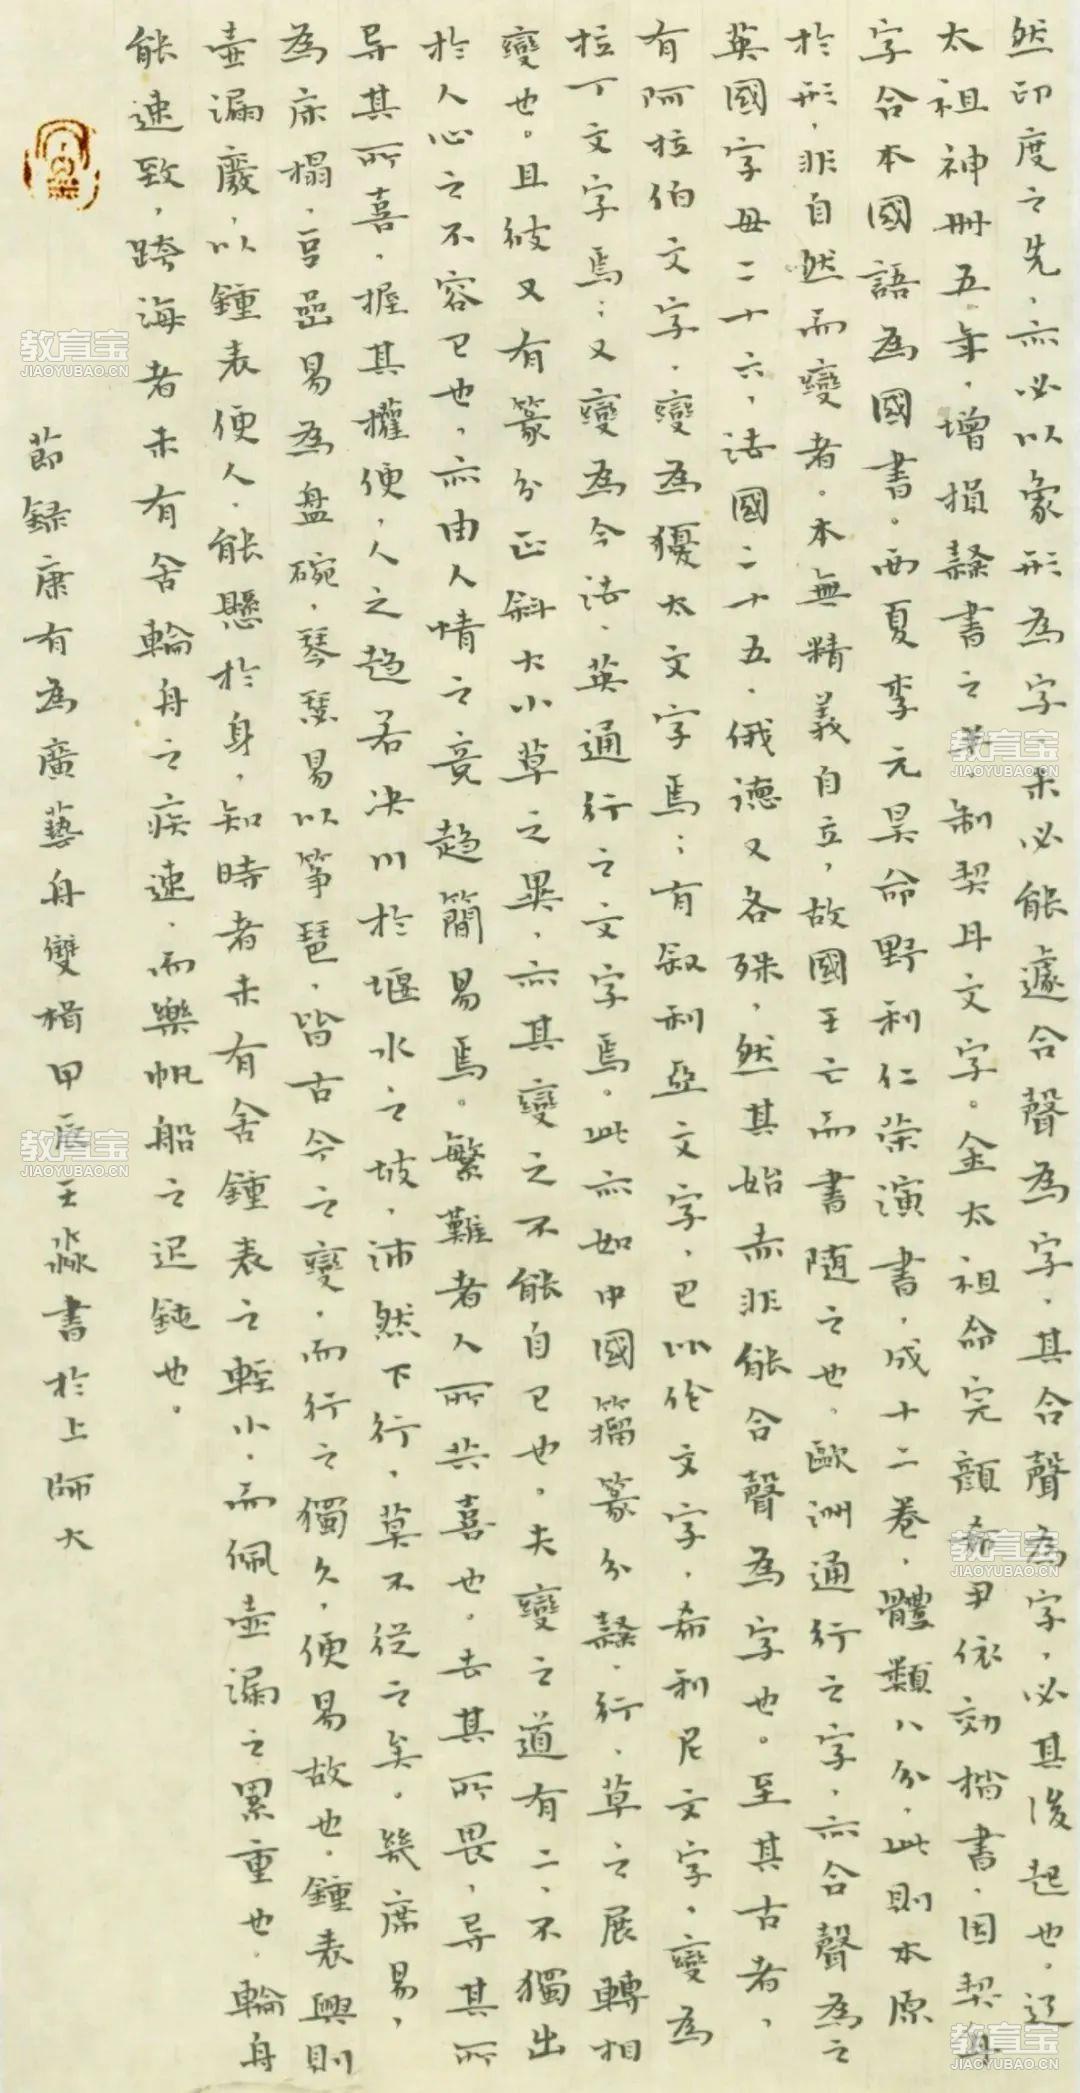 然印度之先，亦必以象形為字，未必能遽合聲為字，其合聲為字，必其後起也。辽
太祖神冊五年，增損隸書之半，制契丹文字。金太祖命完顏希尹依効楷書，因契丹
字合本國語為國書。西夏李元昊命野利仁荣演書，成十二卷，體類八分，此則本原
於形，非自然而變者。本無精義自立，故國王亡而書随之也。歐洲通行之字，亦合聲為之
英國字母二十六，法國二十五，俄德又各殊，然其始亦非能合聲為字也。至其古者，
有阿拉伯文字，變為猶太文字焉；有叙利亞文字，巴比伦文字，希利尼文字，變為
拉丁文字焉；又變為今法、英通行之文字焉。此亦如中國籀篆分隸、行、草之展轉相
變也。且彼又有篆分正斜大小草之異，亦其變之不能自已也。夫變之道有二，不獨出
於人心之不容已也，亦由人情之竟趋簡易焉。繁難者人所共喜也。去其所畏，导其所
导其所喜，握其權便，人之趋若决川於堰水之坡，沛然下行，莫不從之矣。幾席易，
為床榻，豆登易為盘碗，琴瑟易以筝琶，皆古今之變，而行之獨久，便易故也，鍾表興則
壶漏廢，以鍾表便人，能懸於身，知時者未有舍鍾表之輕小，而佩壶漏之累重也，輪舟
能速致，跨海者未有舍輪舟之疾速，而樂帆船之迟鈍也。
節録康有為廣藝舟雙楫甲辰王淼書於上師大
教育宝
JIAOYUBAO.CN
教育宝
JIAOYUBAO.CN
教育宝
JIAOYUBAO.CN
教育宝
JIAOYUBAO.CN
教育宝
JIAOYUBAO.CN